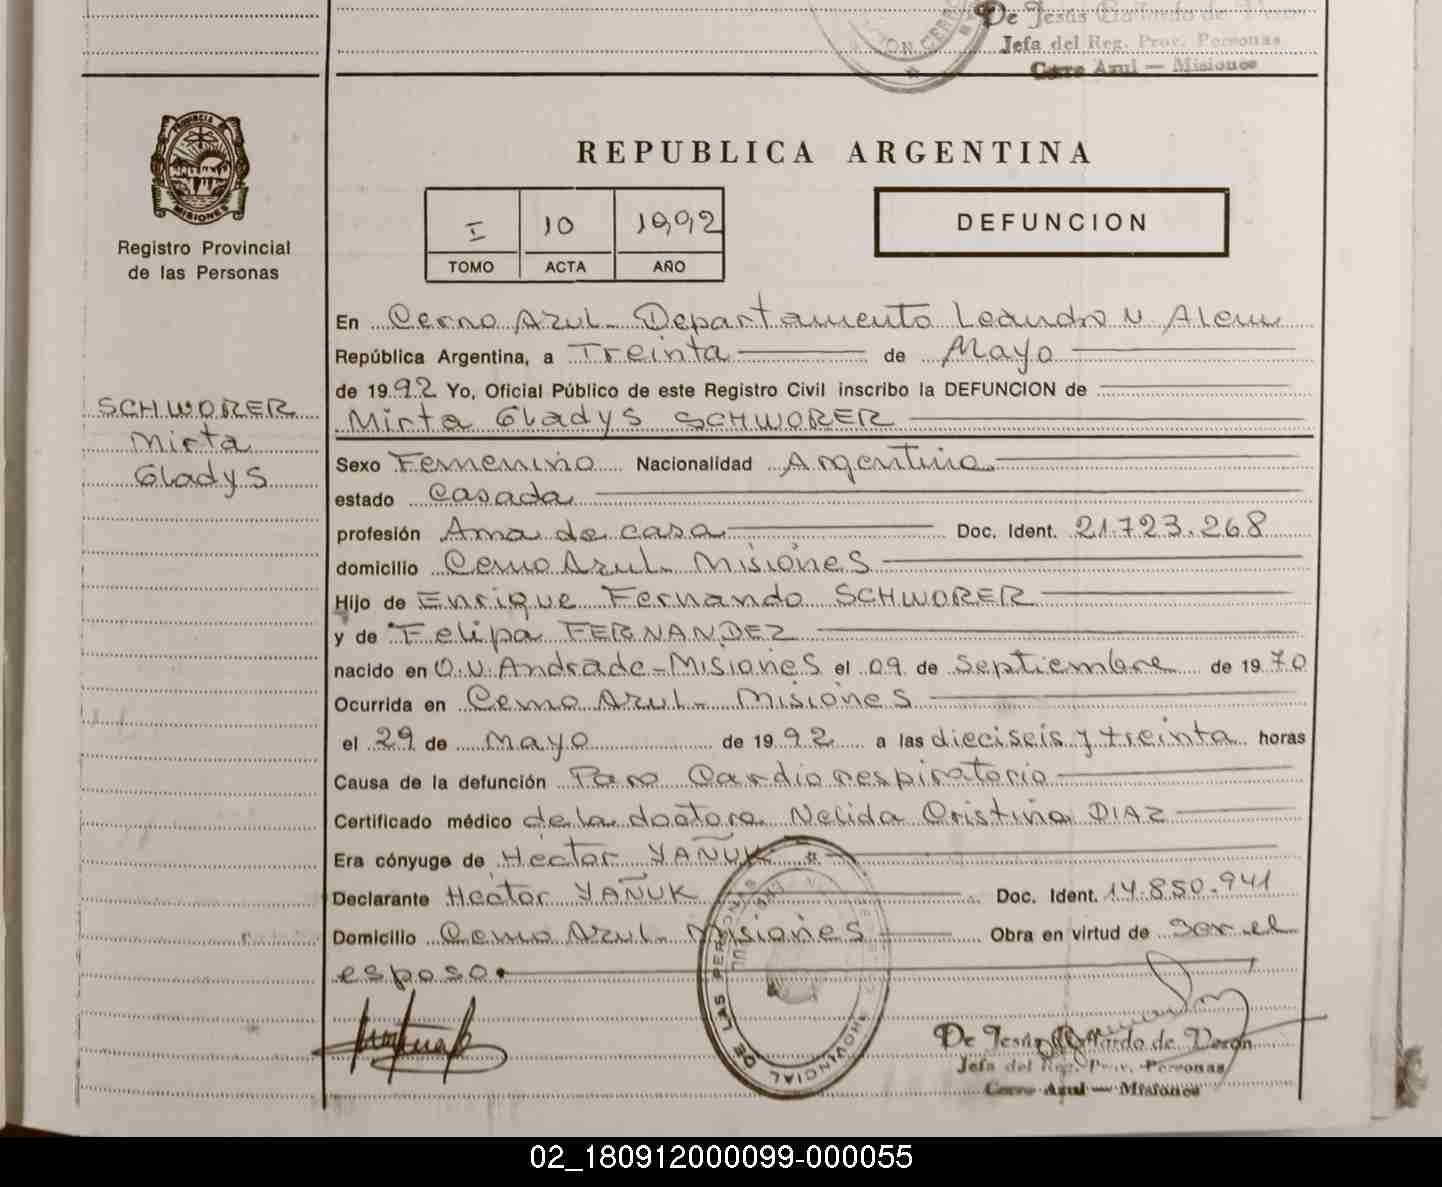 De Jesús Gallardo de Verón
Jefa del Reg. Prov. Personas
Cerro Azul — Misiones
PROVINCIA
MISIONES
Registro Provincial
de las Personas
REPUBLICA ARGENTINA
I 10 1992
TOMO ACTA AÑO
DEFUNCION
SCHWORER
Mirta
Gladys
En Cerro Azul - Departamento Leandro N. Alem
República Argentina, a Treinta de Mayo
de 1992 Yo, Oficial Público de este Registro Civil inscribo la DEFUNCION de
Mirta Gladys SCHWORER
Sexo Femenino Nacionalidad Argentina
estado Casada
profesión Ama de casa Doc. Ident. 21.723.268
domicilio Cerro Azul - Misiones
Hijo de Enrique Fernando SCHWORER
y de Felipa FERNANDEZ
nacido en O.V. Andrade - Misiones el 09 de Septiembre de 1970
Ocurrida en Cerro Azul - Misiones
el 29 de Mayo de 1992 a las dieciseis y treinta horas
Causa de la defunción Paro Cardiorespiratorio
Certificado médico de la doctora Nelida Cristina DIAZ
Era cónyuge de Héctor YAÑUK
Declarante Héctor YAÑUK Doc. Ident. 14.850.941
Domicilio Cerro Azul - Misiones Obra en virtud de ser el
esposo
PROVINCIAL DE LAS PERSONAS
De Jesús Gallardo de Verón
Jefa del Reg. Prov. Personas
Cerro Azul — Misiones
02_180912000099-000055